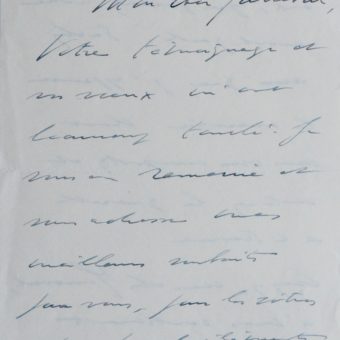 Mon cher Général,
Votre témoignage et
vos vœux m'ont
beaucoup touché. Je
vous en remercie et
vous adresse mes
meilleurs souhaits
pour vous, pour les vôtres